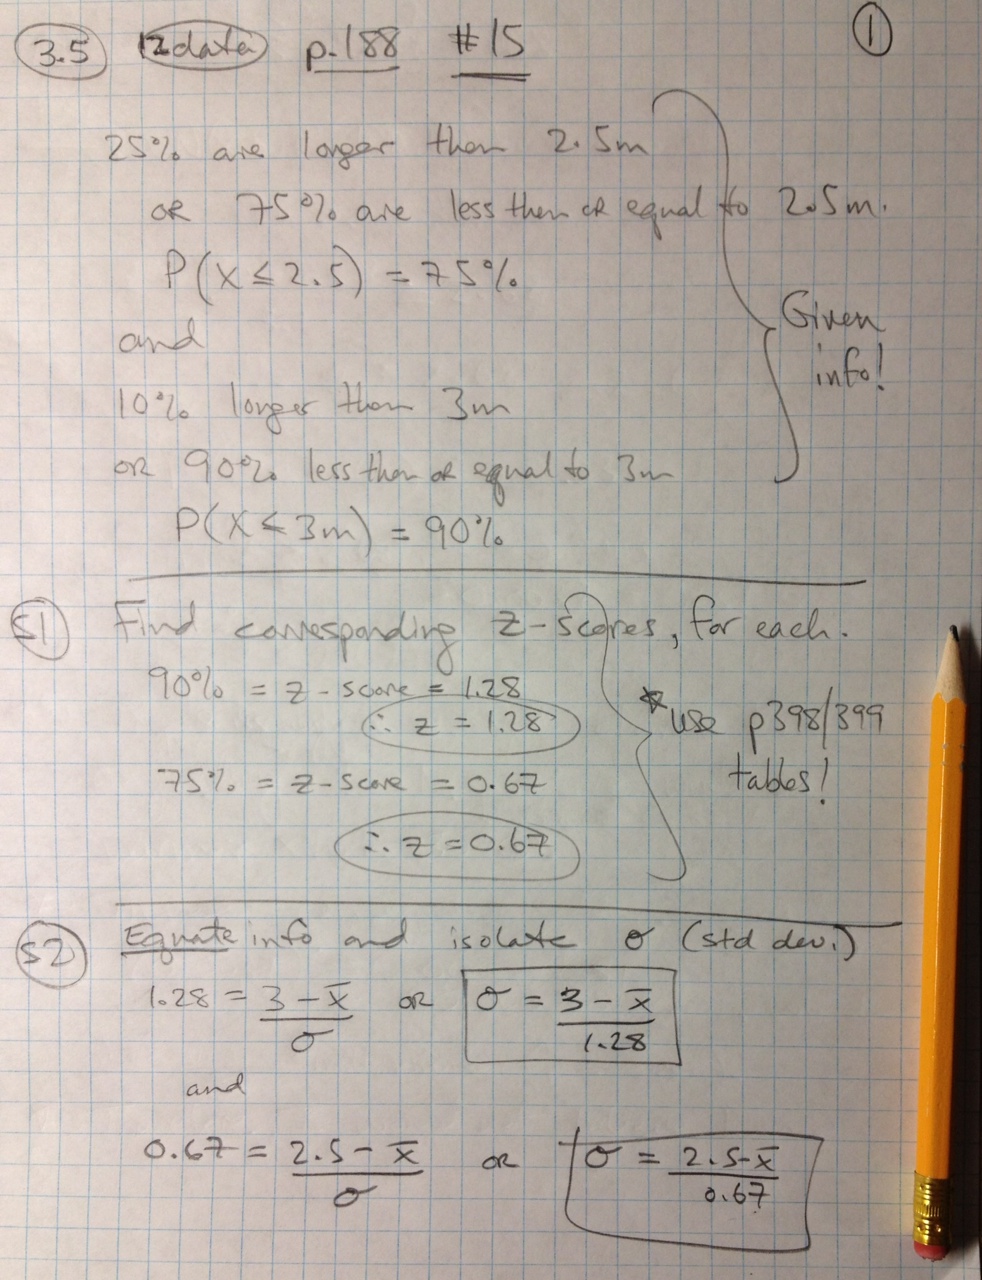 3.5 12data p.188 #15
1
25% are longer than 2.5m
or 75% are less then or equal to 2.5m.
P(x ≤ 2.5) = 75%
and
Given
info!
10% longer than 3m
or 90% less than or equal to 3m
P(x ≤ 3m) = 90%
S1 Find corresponding z-scores, for each.
90% = z-score = 1.28
∴ z = 1.28
*use p398/399
tables!
75% = z-score = 0.67
∴ z = 0.67
S2 Equate info and isolate σ (std dev.)
1.28 = 3 - x̄ / σ or σ = 3 - x̄ / 1.28
and
0.67 = 2.5 - x̄ / σ or σ = 2.5 - x̄ / 0.67